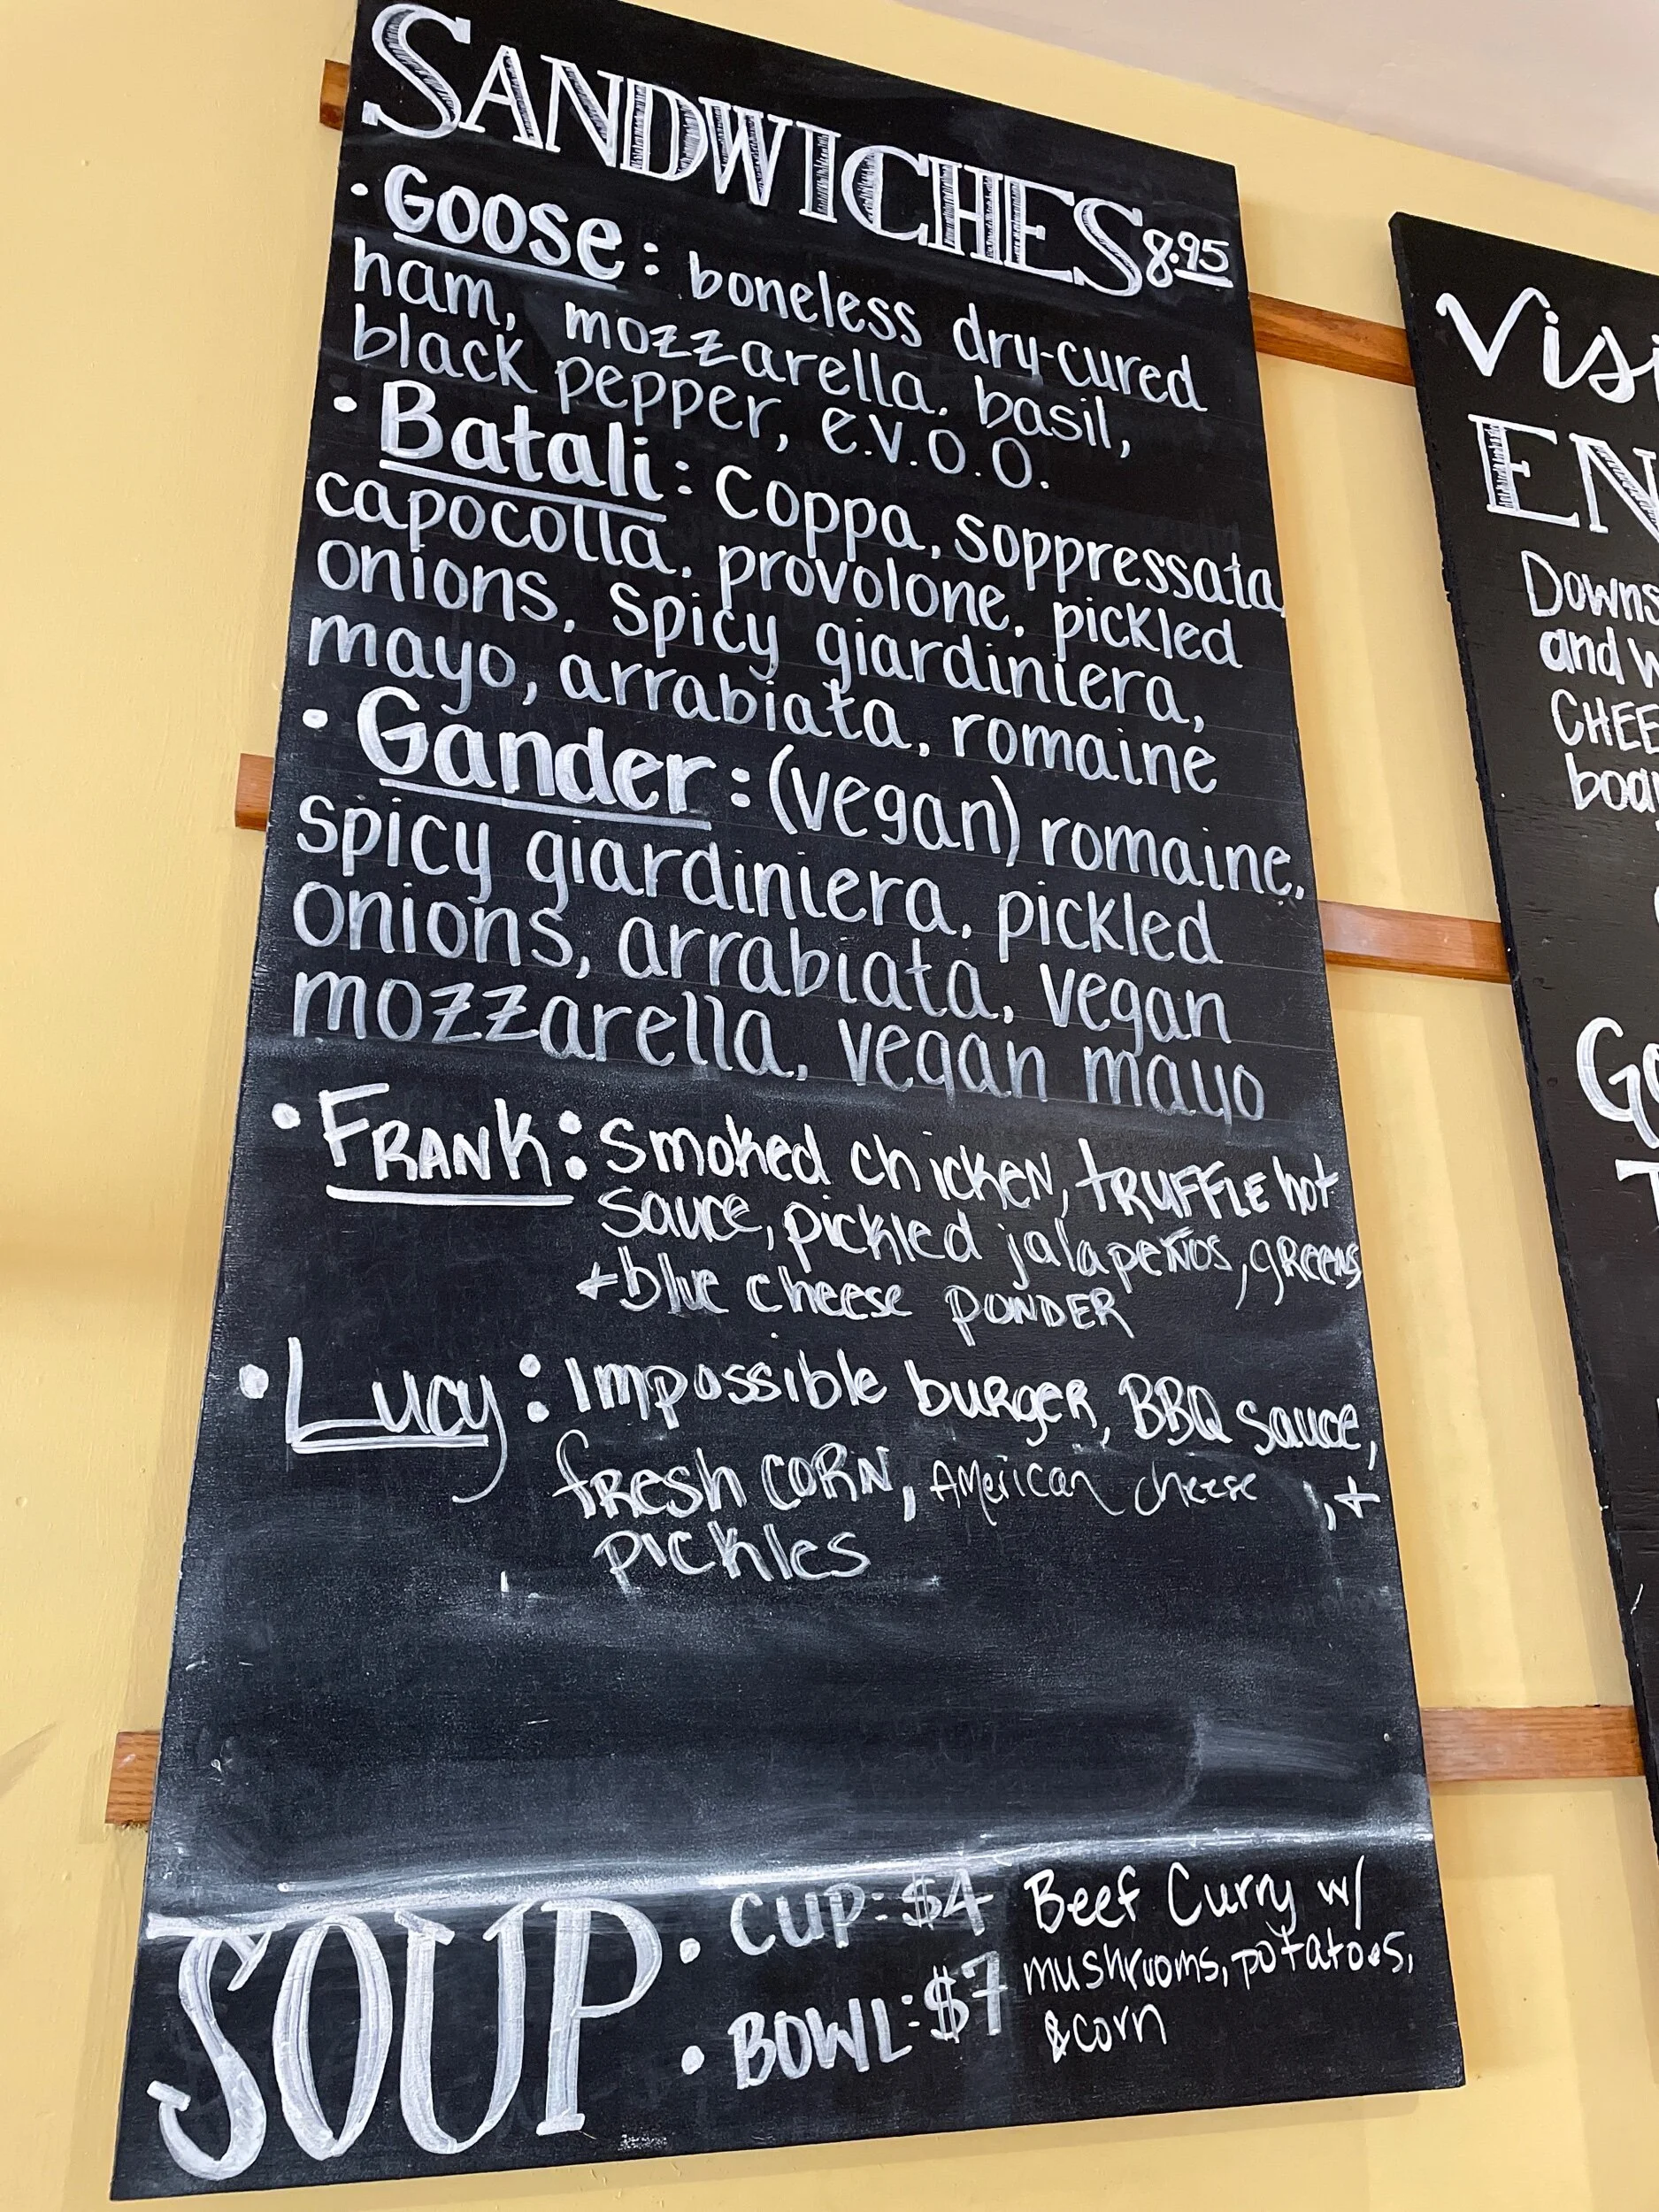 SANDWICHES 8.95
• GOOSE: boneless dry-cured
ham, mozzarella, basil,
black pepper, e.v.o.o.
• Batali: Coppa, soppressata,
capocolla, provolone, pickled
onions, spicy giardiniera,
mayo, arrabiata, romaine
• Gander: (vegan) romaine,
spicy giardiniera, pickled
onions, arrabiata, vegan
mozzarella, vegan mayo
• FRANK: Smoked chicken, TRUFFLE hot
sauce, pickled jalapeños, greens
+ blue cheese POWDER
• Lucy: Impossible burger, BBQ sauce,
fresh CORN, American cheese, +
pickles
SOUP
• CUP: $4
• BOWL: $7
Beef Curry w/
mushrooms, potatoes,
& corn
Visi
EN
Downs
and w
CHEE
boar
Go
T